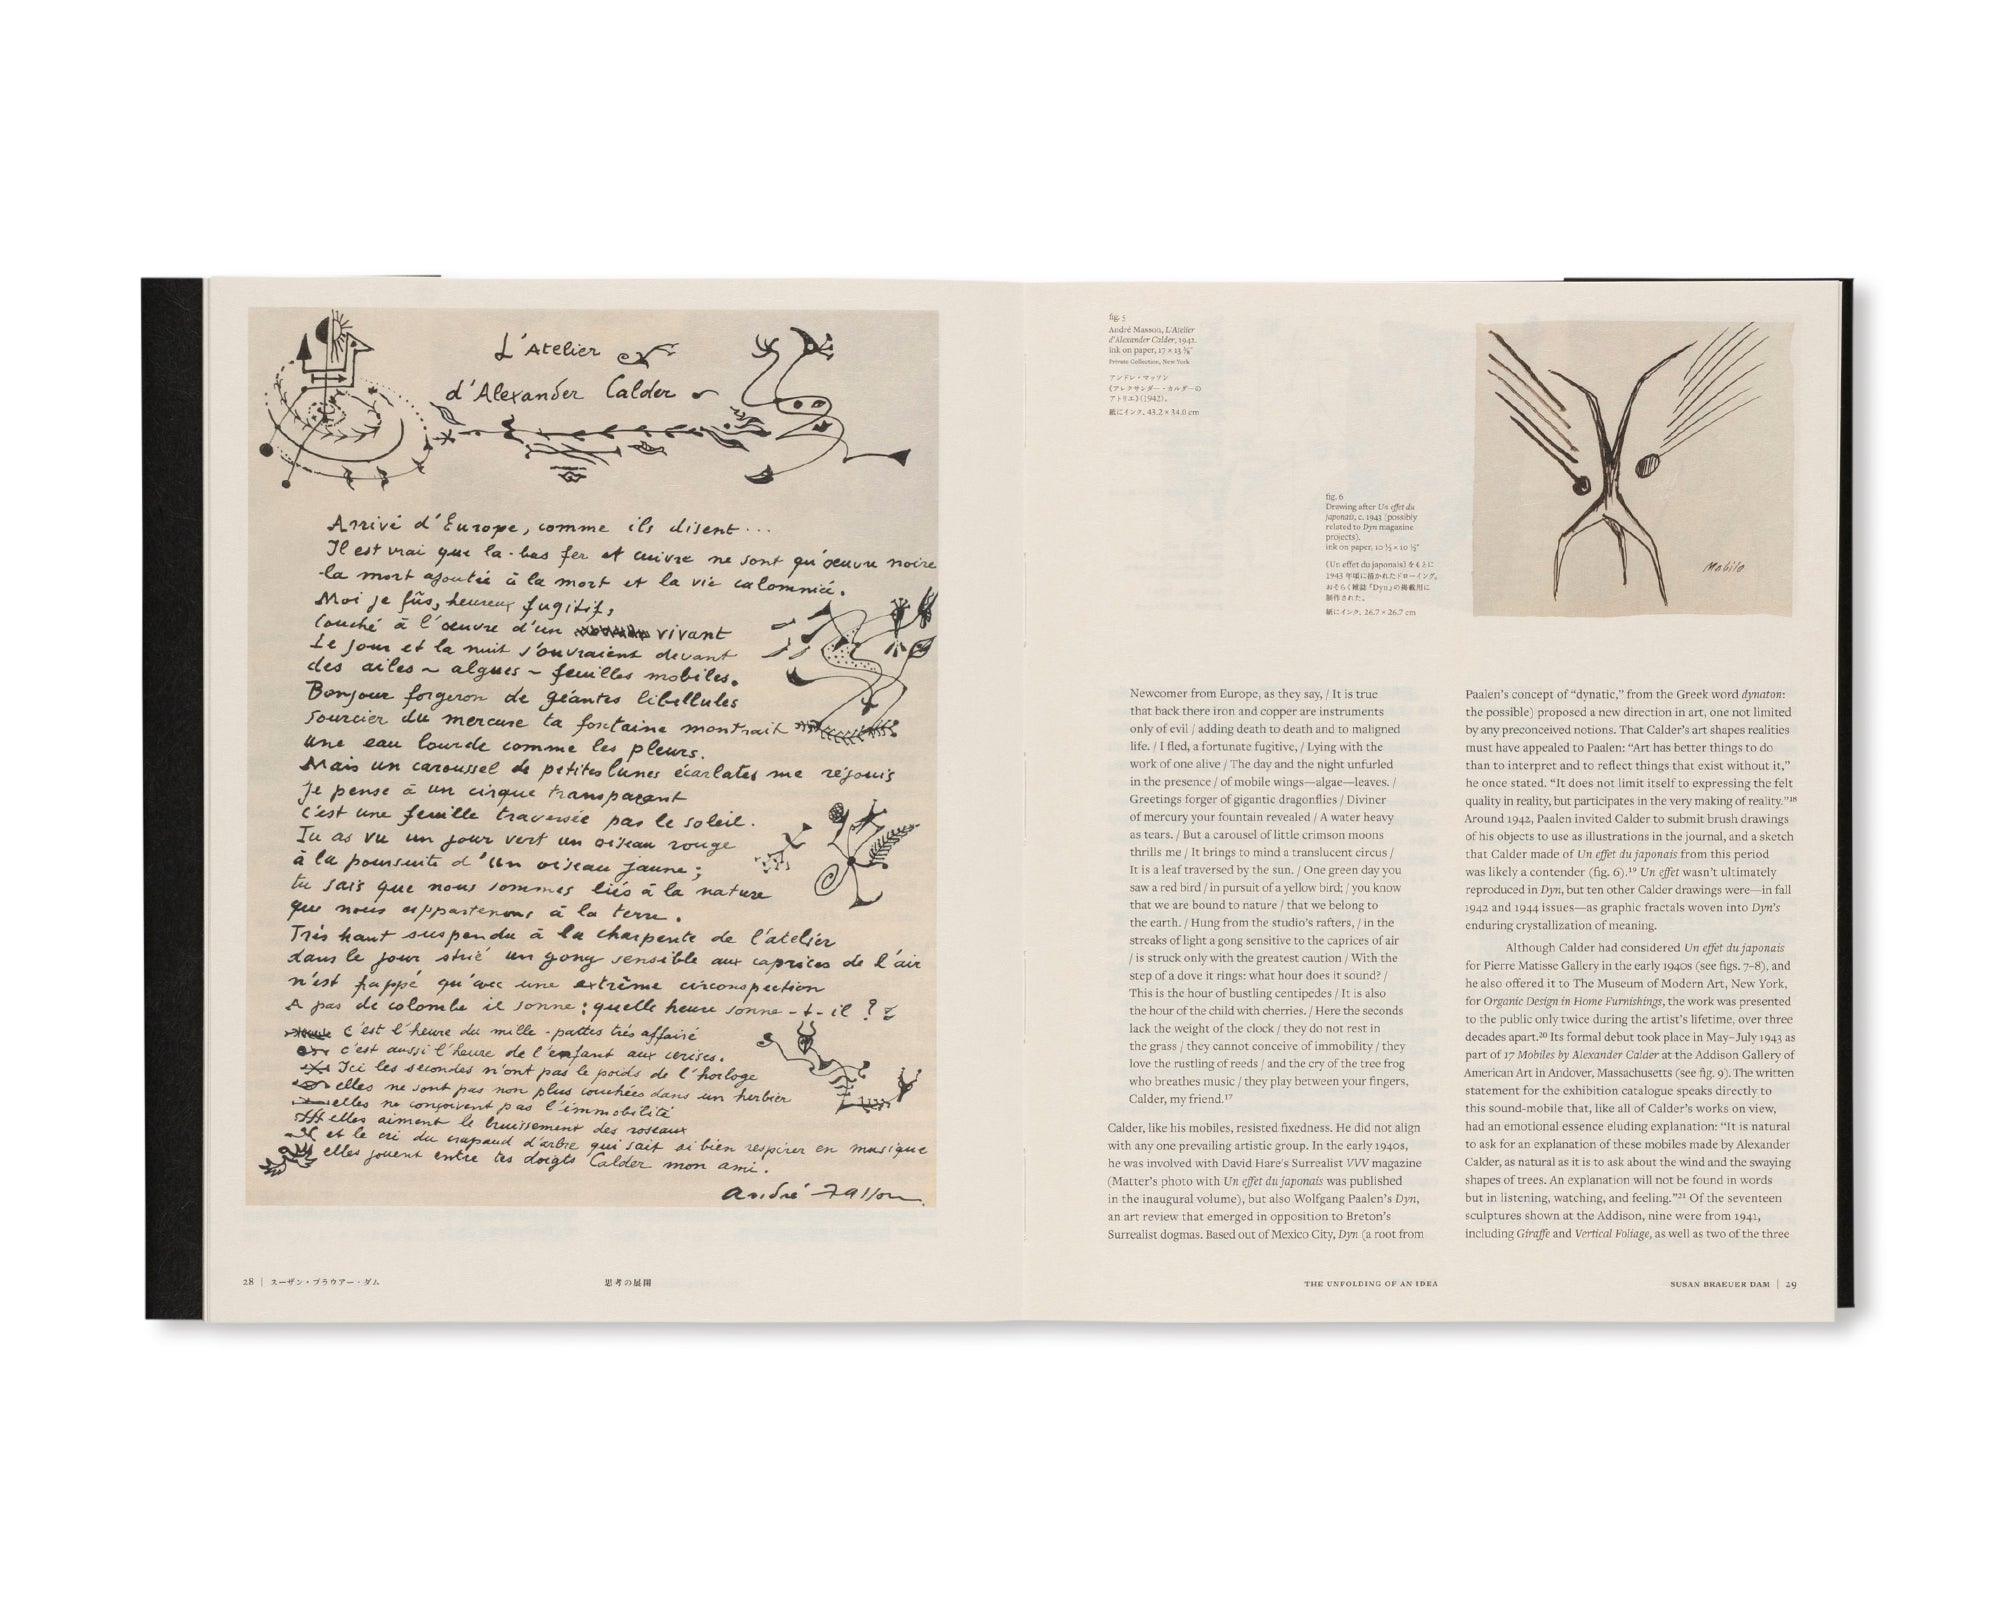 L'Atelier
d'Alexander Calder
Arrivé d'Europe, comme ils disent...
Il est vrai que la-bas fer et cuivre ne sont qu'œuvre noire
la mort ajoutée à la mort et la vie calomniée.
Moi je fûs, heureux fugitif,
Couché à l'œuvre d'un vivant
Le jour et la nuit s'ouvraient devant
des ailes ~ algues ~ feuilles mobiles.
Bonjour forgeron de géantes libellules
sourcier du mercure ta fontaine montrait
une eau lourde comme les pleurs.
Mais un caroussel de petites lunes écarlates me réjouis
Je pense à un cirque transparent
c'est une feuille traversée pas le soleil.
Tu as vu un jour vert un oiseau rouge
à la poursuite d'un oiseau jaune;
tu sais que nous sommes liés à la nature
que nous appartenons à la terre.
Très haut suspendu à la charpente de l'atelier
dans le jour strié un gong sensible aux caprices de l'air
n'est frappé qu'avec une extrême circonspection
A pas de colombe il sonne: quelle heure sonne-t-il?
c'est l'heure du mille-pattes très affairé
c'est aussi l'heure de l'enfant aux cerises.
Ici les secondes n'ont pas le poids de l'horloge
elles ne sont pas non plus couchées dans un herbier
elles ne conçoivent pas l'immobilité
elles aiment le bruissement des roseaux
et le cri du crapaud d'arbre qui sait si bien respirer en musique
elles jouent entre tes doigts Calder mon ami.
André Masson
28 | スーザン・ブラウアー・ダム
思考の展開
fig. 5
André Masson, L'Atelier
d'Alexander Calder, 1942.
ink on paper, 17 × 13 ⅜"
Private Collection, New York
アンドレ・マッソン
《アレクサンダー・カルダーの
アトリエ》(1942)。
紙にインク, 43.2 × 34.0 cm
fig. 6
Drawing after Un effet du
japonais, c. 1943 [possibly
related to Dyn magazine
projects].
ink on paper, 10 ½ × 10 ½"
《Un effet du japonais》をもとに
1943 年頃に描かれたドローイング。
おそらく雑誌『Dyn』の掲載用に
制作された。
紙にインク, 26.7 × 26.7 cm
Mobile
Newcomer from Europe, as they say, / It is true
that back there iron and copper are instruments
only of evil / adding death to death and to maligned
life. / I fled, a fortunate fugitive, / Lying with the
work of one alive / The day and the night unfurled
in the presence / of mobile wings—algae—leaves. /
Greetings forger of gigantic dragonflies / Diviner
of mercury your fountain revealed / A water heavy
as tears. / But a carousel of little crimson moons
thrills me / It brings to mind a translucent circus /
It is a leaf traversed by the sun. / One green day you
saw a red bird / in pursuit of a yellow bird; / you know
that we are bound to nature / that we belong to
the earth. / Hung from the studio's rafters, / in the
streaks of light a gong sensitive to the caprices of air
/ is struck only with the greatest caution / With the
step of a dove it rings: what hour does it sound? /
This is the hour of bustling centipedes / It is also
the hour of the child with cherries. / Here the seconds
lack the weight of the clock / they do not rest in
the grass / they cannot conceive of immobility / they
love the rustling of reeds / and the cry of the tree frog
who breathes music / they play between your fingers,
Calder, my friend.17
Calder, like his mobiles, resisted fixedness. He did not align
with any one prevailing artistic group. In the early 1940s,
he was involved with David Hare's Surrealist VVV magazine
(Matter's photo with Un effet du japonais was published
in the inaugural volume), but also Wolfgang Paalen's Dyn,
an art review that emerged in opposition to Breton's
Surrealist dogmas. Based out of Mexico City, Dyn (a root from
Paalen's concept of "dynatic," from the Greek word dynaton:
the possible) proposed a new direction in art, one not limited
by any preconceived notions. That Calder's art shapes realities
must have appealed to Paalen: "Art has better things to do
than to interpret and to reflect things that exist without it,"
he once stated. "It does not limit itself to expressing the felt
quality in reality, but participates in the very making of reality."18
Around 1942, Paalen invited Calder to submit brush drawings
of his objects to use as illustrations in the journal, and a sketch
that Calder made of Un effet du japonais from this period
was likely a contender (fig. 6).19 Un effet wasn't ultimately
reproduced in Dyn, but ten other Calder drawings were—in fall
1942 and 1944 issues—as graphic fractals woven into Dyn's
enduring crystallization of meaning.
Although Calder had considered Un effet du japonais
for Pierre Matisse Gallery in the early 1940s (see figs. 7–8), and
he also offered it to The Museum of Modern Art, New York,
for Organic Design in Home Furnishings, the work was presented
to the public only twice during the artist's lifetime, over three
decades apart.20 Its formal debut took place in May–July 1943 as
part of 17 Mobiles by Alexander Calder at the Addison Gallery of
American Art in Andover, Massachusetts (see fig. 9). The written
statement for the exhibition catalogue speaks directly to
this sound-mobile that, like all of Calder's works on view,
had an emotional essence eluding explanation: "It is natural
to ask for an explanation of these mobiles made by Alexander
Calder, as natural as it is to ask about the wind and the swaying
shapes of trees. An explanation will not be found in words
but in listening, watching, and feeling."21 Of the seventeen
sculptures shown at the Addison, nine were from 1941,
including Giraffe and Vertical Foliage, as well as two of the three
THE UNFOLDING OF AN IDEA
SUSAN BRAEUER DAM | 29